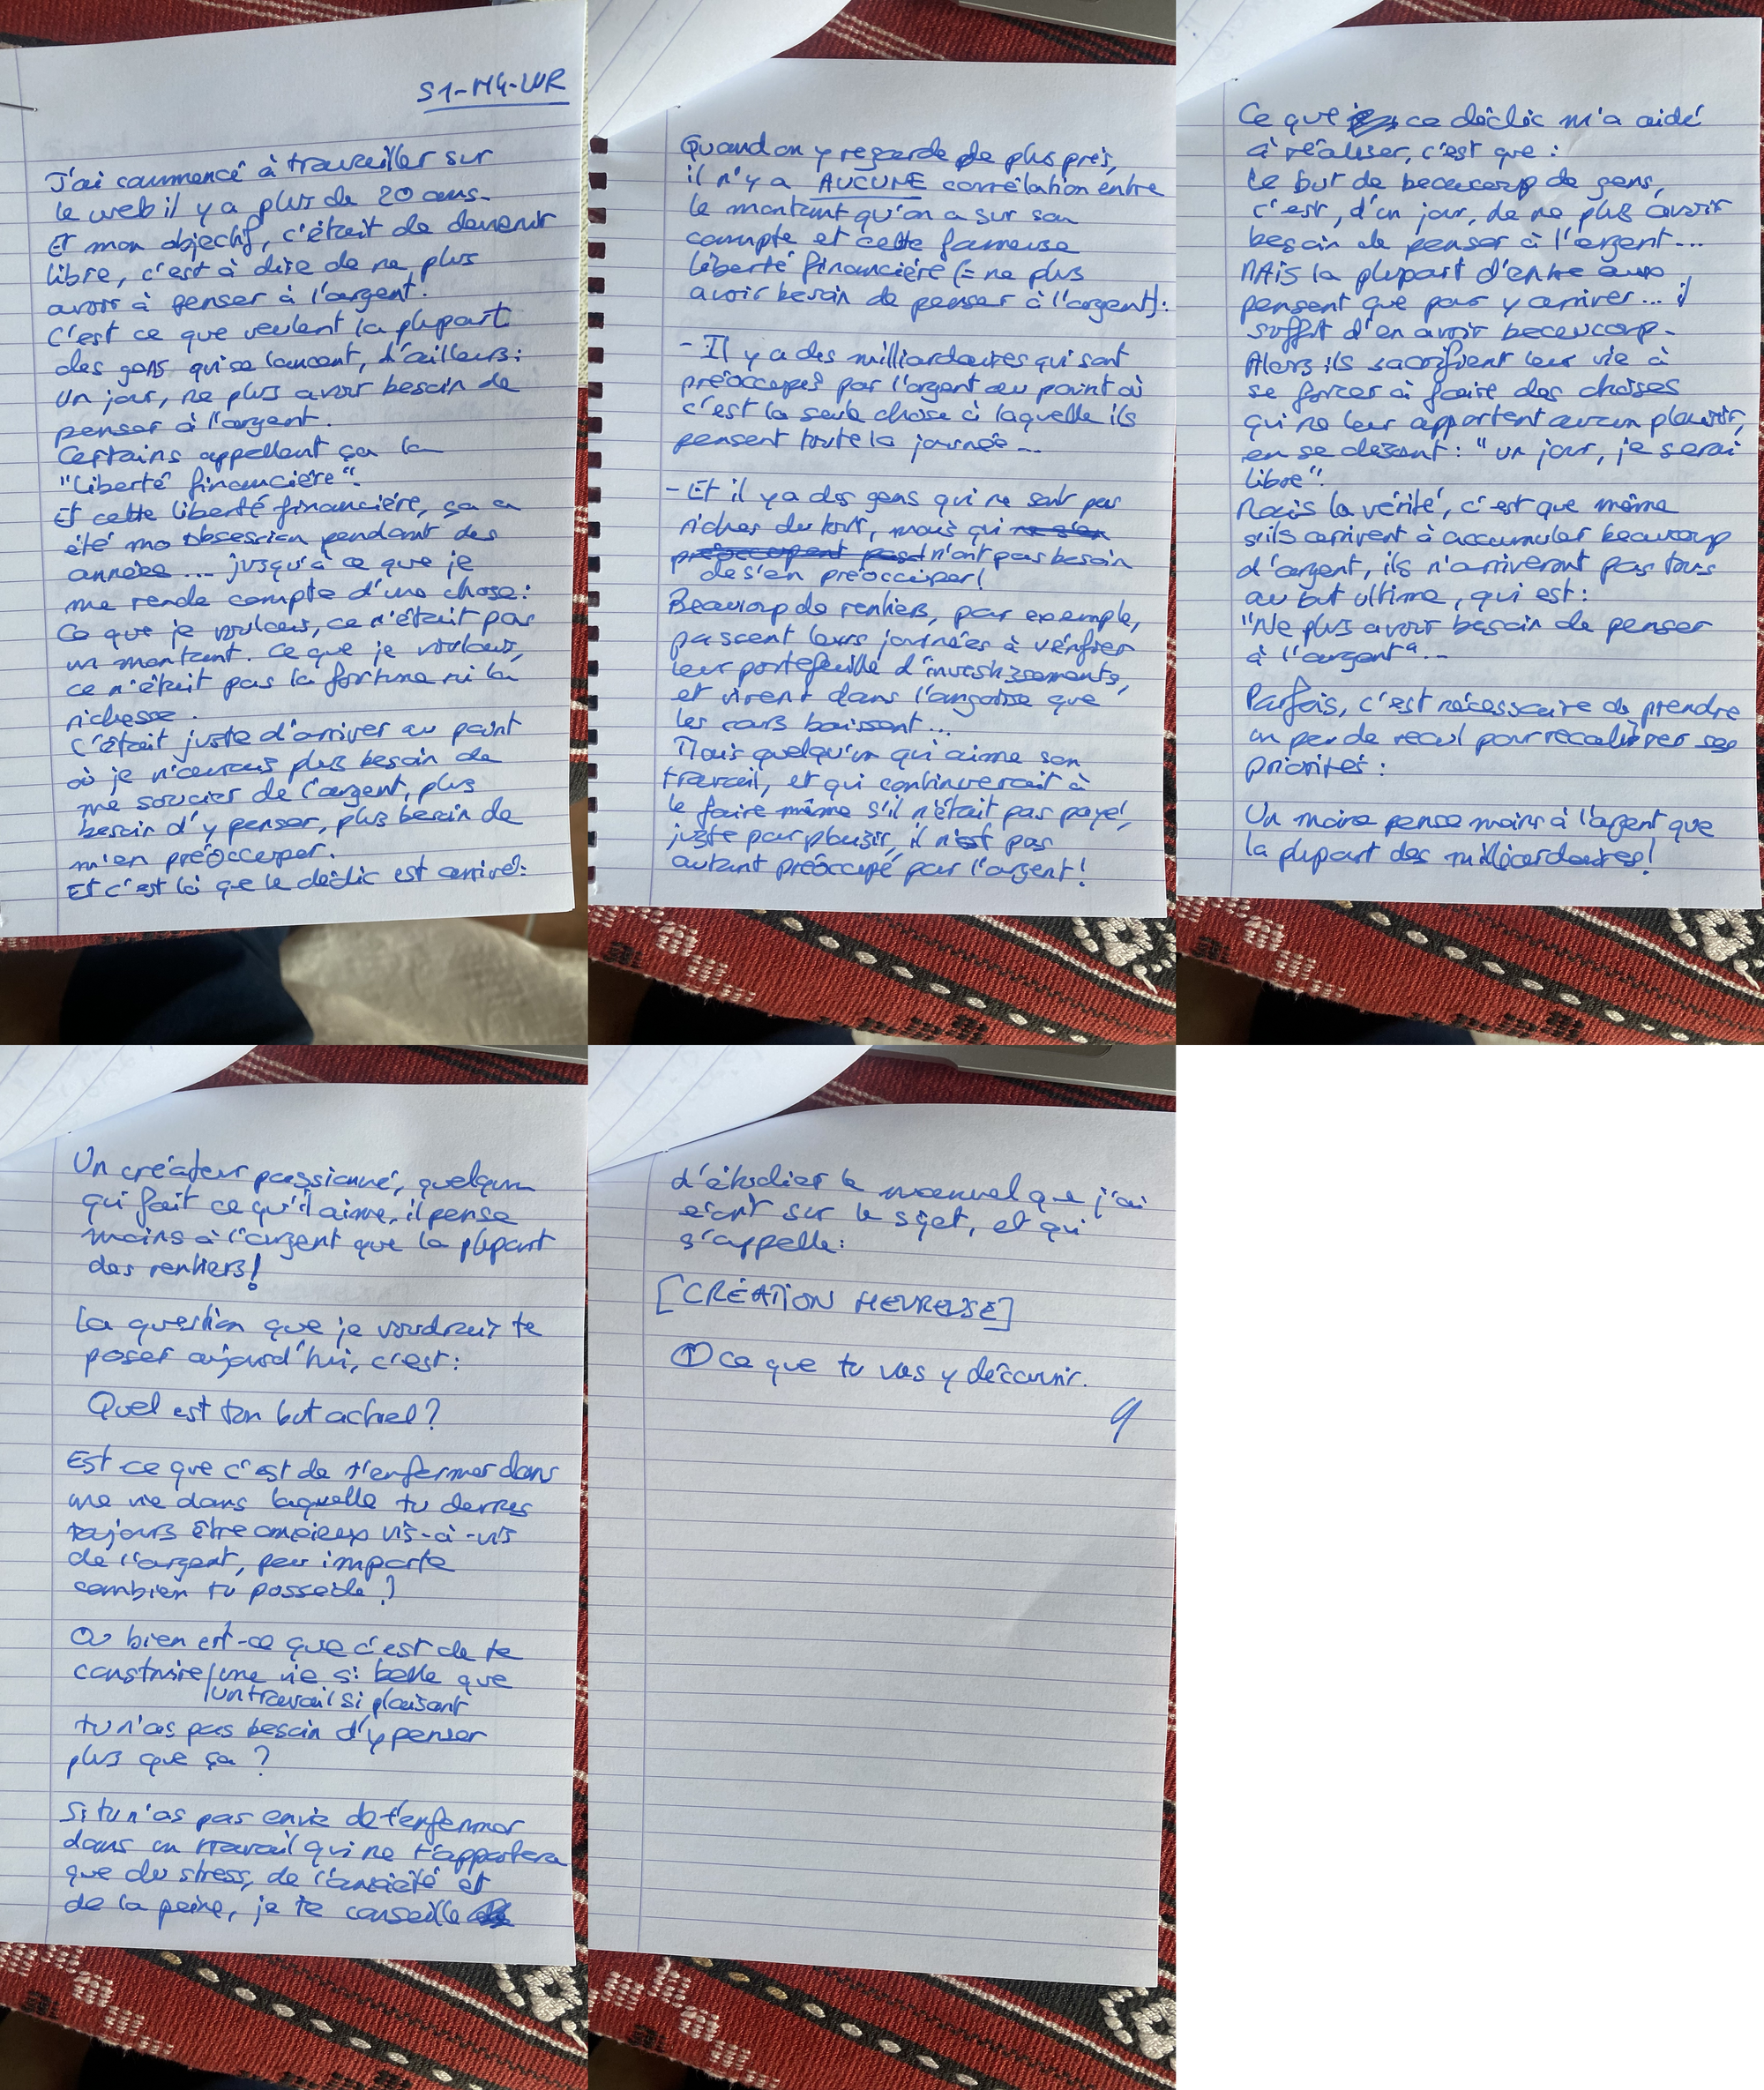 S1-M4-WR
J'ai commencé à travailler sur
le web il y a plus de 20 ans.
Et mon objectif, c'était de devenir
libre, c'est à dire de ne plus
avoir à penser à l'argent.
C'est ce que veulent la plupart
des gens qui se lancent, d'ailleurs:
Un jour, ne plus avoir besoin de
penser à l'argent.
Certains appellent ça la
"liberté financière".
Et cette liberté financière, ça a
été mo obsession pendant des
années... jusqu'à ce que je
me rende compte d'une chose:
Ce que je voulais, ce n'était pas
un montant. Ce que je voulais,
ce n'était pas la fortune ni la
richesse.
C'était juste d'arriver au point
où je n'aurais plus besoin de
me soucier de l'argent, plus
besoin d'y penser, plus besoin de
m'en préoccuper.
Et c'est là que le déclic est arrivé:
Quand on y regarde de plus près,
il n'y a AUCUNE corrélation entre
le montant qu'on a sur son
compte et cette fameuse
liberté financière (= ne plus
avoir besoin de penser à l'argent):
- Il y a des milliardaires qui sont
préoccupés par l'argent au point où
c'est la seule chose à laquelle ils
pensent toute la journée...
- Et il y a des gens qui ne sont pas
riches du tout, mais qui ne s'en
préoccupent pas n'ont pas besoin
de s'en préoccuper!
Beaucoup de rentiers, par exemple,
passent leurs journées à vérifier
leur portefeuille d'investissements,
et vivent dans l'angoisse que
les cours baissent...
Mais quelqu'un qui aime son
travail, et qui continuerait à
le faire même s'il n'était pas payé,
juste par plaisir, il n'est pas
autant préoccupé par l'argent!
Ce que ce déclic m'a aidé
à réaliser, c'est que:
Le but de beaucoup de gens,
c'est, d'un jour, de ne plus avoir
besoin de penser à l'argent...
MAIS la plupart d'entre eux
pensent que pour y arriver... il
suffit d'en avoir beaucoup.
Alors ils sacrifient leur vie à
se forcer à faire des choses
qui ne leur apportent aucun plaisir,
en se disant: "un jour, je serai
libre".
Mais la vérité, c'est que même
s'ils arrivent à accumuler beaucoup
d'argent, ils n'arriveront pas tous
au but ultime, qui est:
"Ne plus avoir besoin de penser
à l'argent"...
Parfois, c'est nécessaire de prendre
un peu de recul pour recalibrer ses
priorités:
Un moine pense moins à l'argent que
la plupart des milliardaires!
Un créateur passionné, quelqun
qui fait ce qu'il aime, il pense
moins à l'argent que la plupart
des rentiers!
La question que je voudrais te
poser aujourd'hui, c'est:
Quel est ton but actuel?
Est ce que c'est de t'enfermer dans
une vie dans laquelle tu devras
toujours être anxieux vis-à-vis
de l'argent, peu importe
combien tu possède?
Ou bien est-ce que c'est de te
construire une vie si belle que
un travail si plaisant
tu n'as pas besoin d'y penser
plus que ça?
Si tu n'as pas envie de t'enfermer
dans un travail qui ne t'apportera
que du stress, de l'anxiété et
de la peine, je te conseille
d'étudier le manuel que j'ai
écrit sur le sujet, et qui
s'appelle:
[CRÉATION HEUREUSE]
① Ce que tu vas y découvrir.